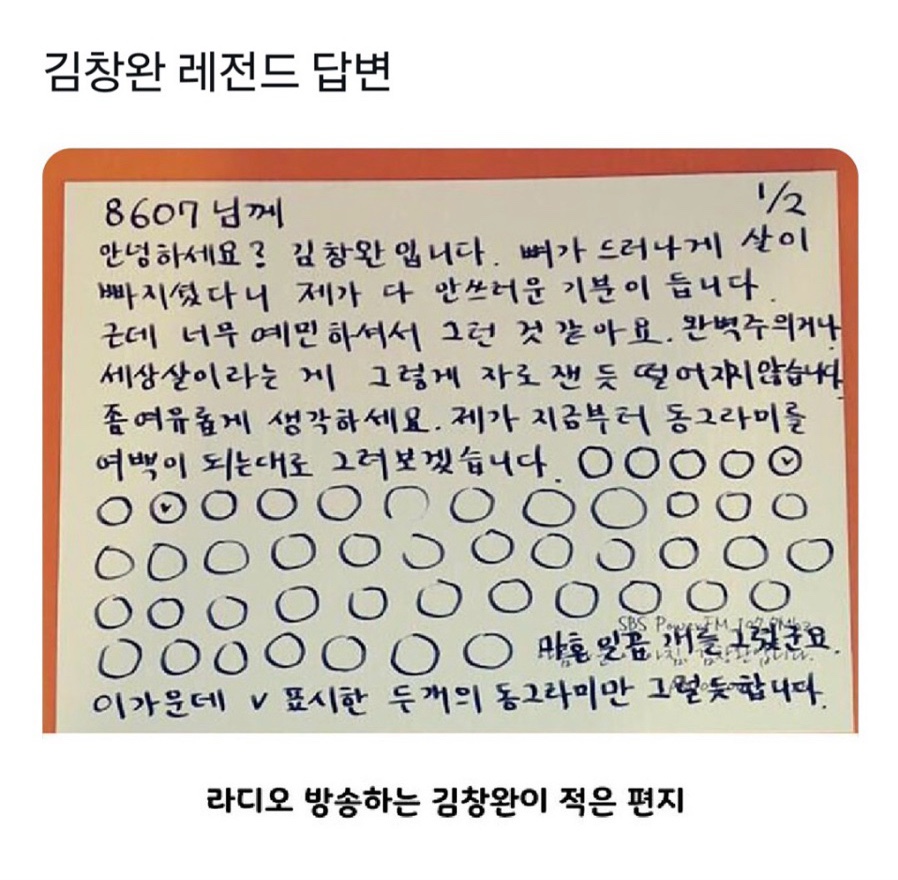 김창완 레전드 답변
8607님께 1/2
안녕하세요? 김창완입니다. 뼈가 드러나게 살이
빠지셨다니 제가 다 안쓰러운 기분이 듭니다.
근데 너무 예민하셔서 그런 것 같아요. 완벽주의거나
세상살이라는 게 그렇게 자로 잰 듯 떨어지지 않습니다
좀 여유롭게 생각하세요. 제가 지금부터 동그라미를
여백이 되는대로 그려보겠습니다.
SBS PowerFM 107.7Mhz
마흔 일곱 개를 그렸군요.
김창완입니다.
이 가운데 v 표시한 두 개의 동그라미만 그럴듯합니다.
라디오 방송하는 김창완이 적은 편지